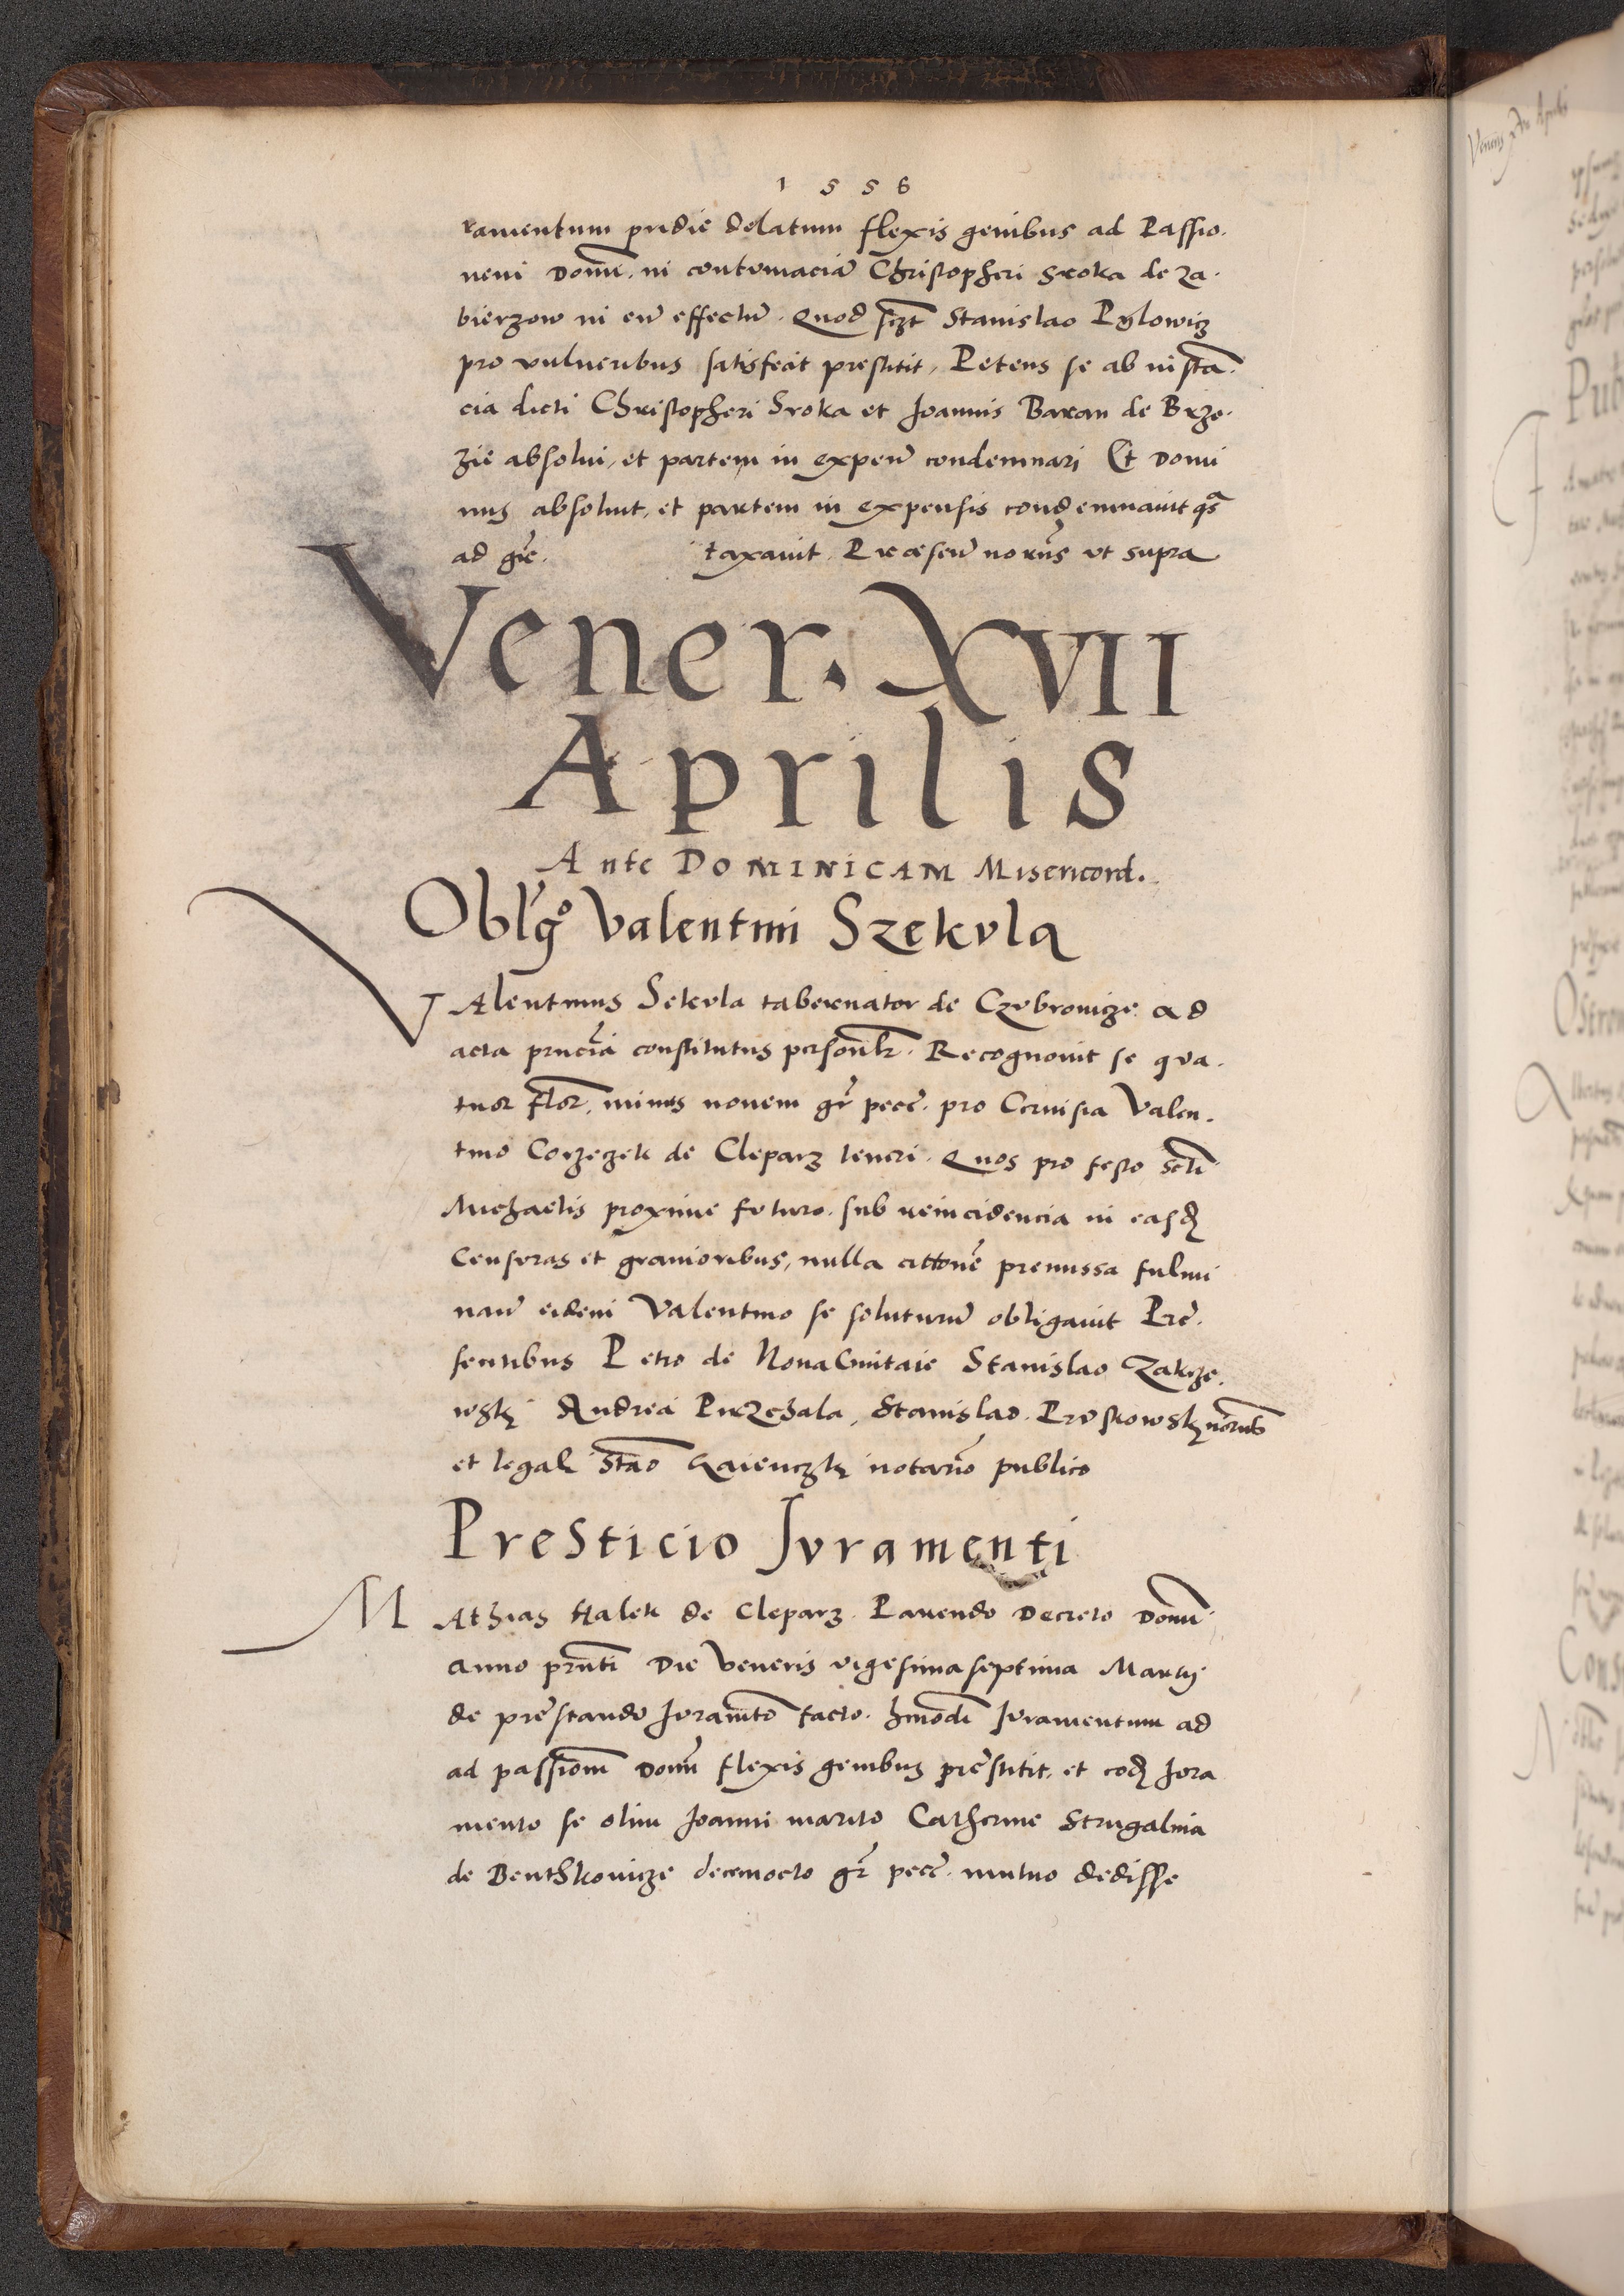 1 5 5 6
ramentum pridie delatum flexis genibus ad Passio.
nem Domī. in contumaciā Christopheri Sroka de Za.
bierzow in eū effectū. Quod sczt Stanislao Pglowicz
pro vulneribus satisfecit prestitit, Petens se ab insta.
cia dicti Christopheri Sroka et Joannis Baran de Brze.
zie absolui, et partem in expen̄ condemnari Et Domi
nus absoluit, et partem in expensis condemnauit qs
ad grē. taxauit. Præsen̄ norīis vt supra
Vener. XVII
Aprilis
Ante DOMINICAM Misericord.
Obl'go Valentini Szekvla
VAlentinus Sekvla tabernator de Czvbrowicze ad
acta pn̄cia constitutus personlr. Recognouit se qva.
tuor flor. minus nouem gr pecc. pro Ceruisia Valen.
tino Corzeczek de Cleparz teneri. Quos pro festo scti
Michaelis proxime fvturo. sub reincidencia in easd
Censvras et grauioribus, nulla cittone premissa fulmi
nan̄ eidem Valentino se soluturū obligauit Pre.
sentibus Petro de Noua Ciuitate Stanislao Zakrze.
wsky Andrea Przechala, Stanislao. Prvskowsky norīis
et legali Stao Zaienczky notario publico
PreSticio Jvramenti
MAthias Halek de Cleparz. Parendo Decreto Domī
anno prnti Die Veneris vigesima septima Martij
de prestando Jvramto facto. hmodi Jvramentum ad
ad passionem Domī flexis genibus prestitit, et eod Jvra
mento se olim Joanni marito Catherine Strugalina
de Benthkowicze decemocto gr pecc. mutuo dedisse